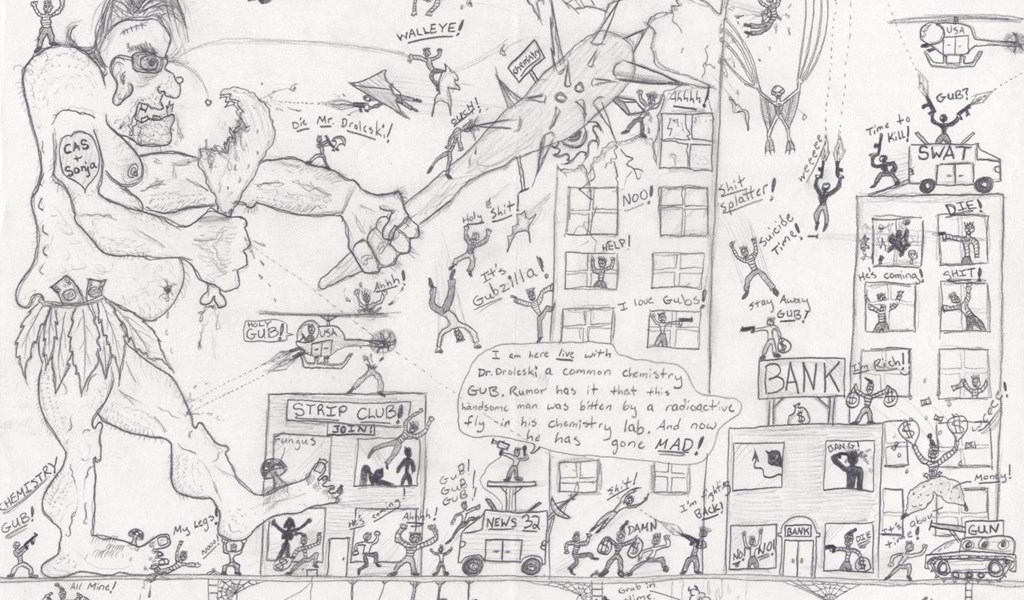 WALLEYE!
USA
chemistry
OUCH!
Ahhhh!
GUB?
Die Mr. Droleski!
Time to
Kill!
SWAT
weeeeee
CAS
+
Sonja
NOO!
Shit
Splatter!
DIE!
Holy Shit!
Suicide
Time!
HELP!
He's coming!
SHIT!
It's
Gubzilla!
Ahhh!
I love Gubs!
Stay Away
GUB!
HOLY
GUB!
USA
I am here live with
Dr. Droleski a common chemistry
GUB. Rumor has it that this
handsome man was bitten by a radioactive
fly in his chemistry lab. And now
he has gone MAD!
BANK
I'm Rich!
STRIP CLUB!
JOIN!
Fungus
BANG!
CHEMISTRY
GUB!
GUB!
GUB!
GUB!
Shit!
I'm fighting
Back!
Money!
My Legs!
He's coming!
Ahhhh!
NEWS 32
DAMN
NO! NO!
BANK
DIE
It's about
time!
GUN
All Mine!
Grub in
slime.